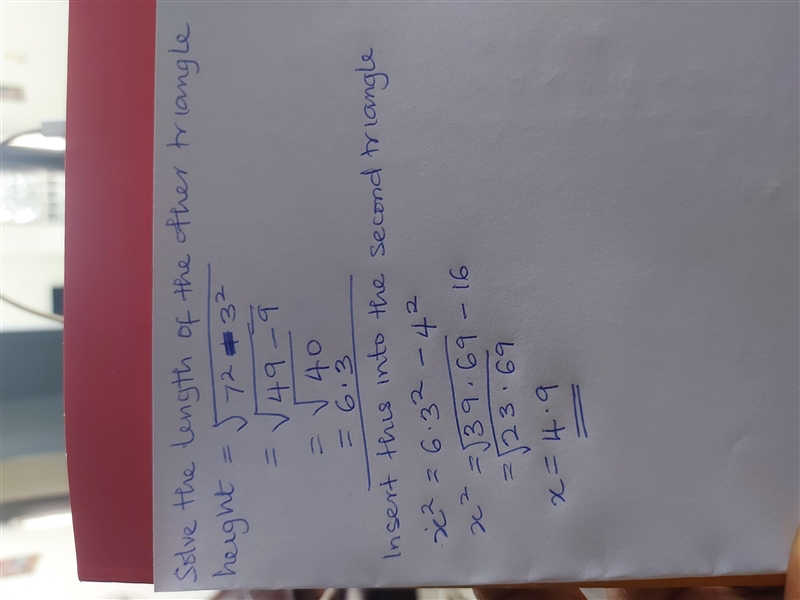 Solve the length of the other triangle
height = √7² - 3²
= √49 - 9
= √40
= 6.3
Insert this into the second triangle
x² = 6.3² - 4²
x² = √39.69 - 16
= √23.69
x = 4.9